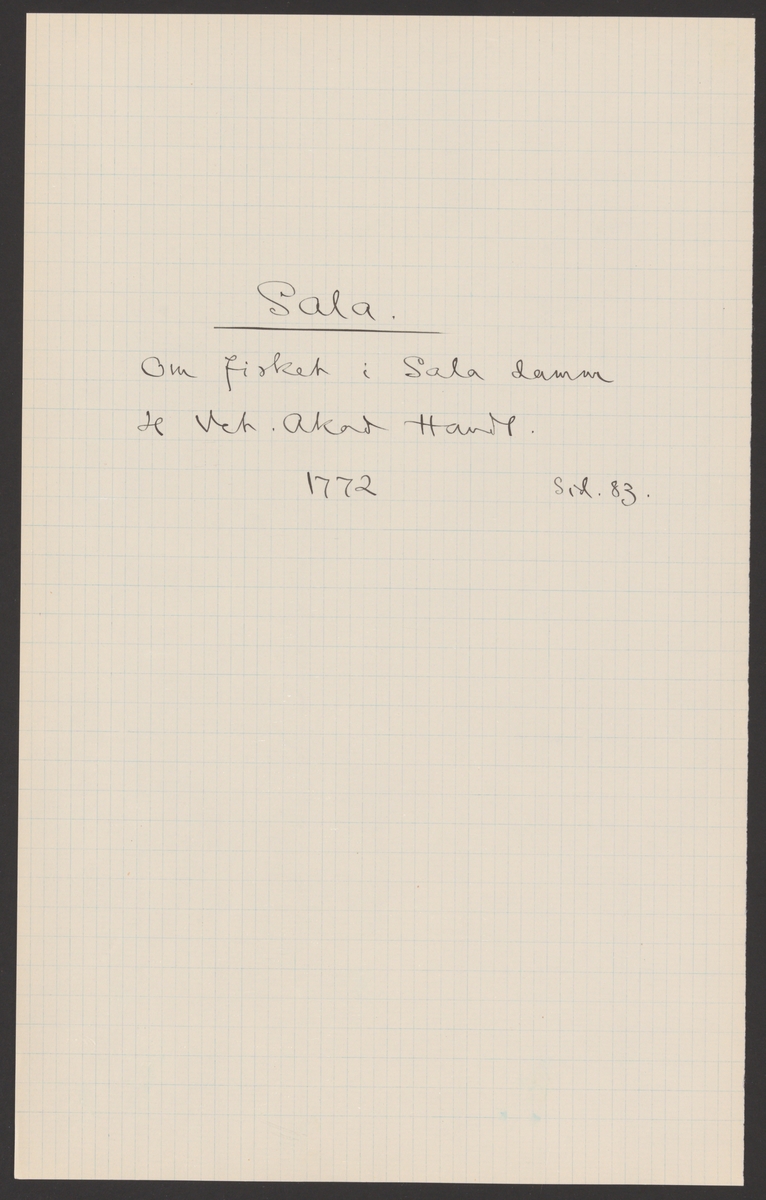 Sala.
Om fisket i Sala damm
se Vet. Akad Handl.
1772 Sid. 83.